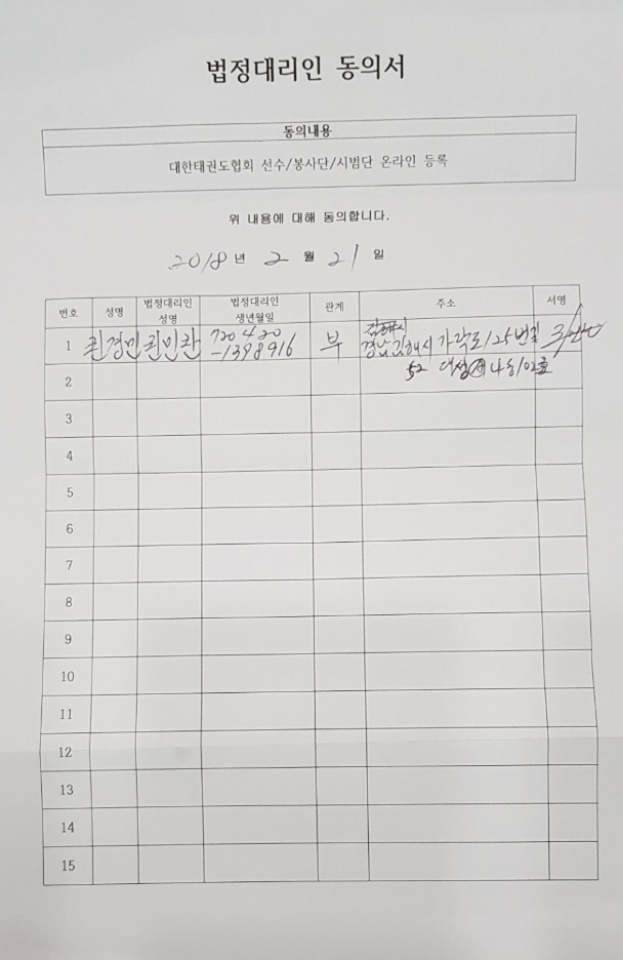 법정대리인 동의서
동의내용
대한태권도협회 선수/봉사단/시범단 온라인 등록
위 내용에 대해 동의합니다.
2018 년 2 월 21 일
번호 성명 법정대리인 성명 법정대리인 생년월일 관계 주소 서명
김해시
1 최경민 최민찬 720420 -1398916 부 경남 김해시 가락로125번길
52 나동102호
2
3
4
5
6
7
8
9
10
11
12
13
14
15